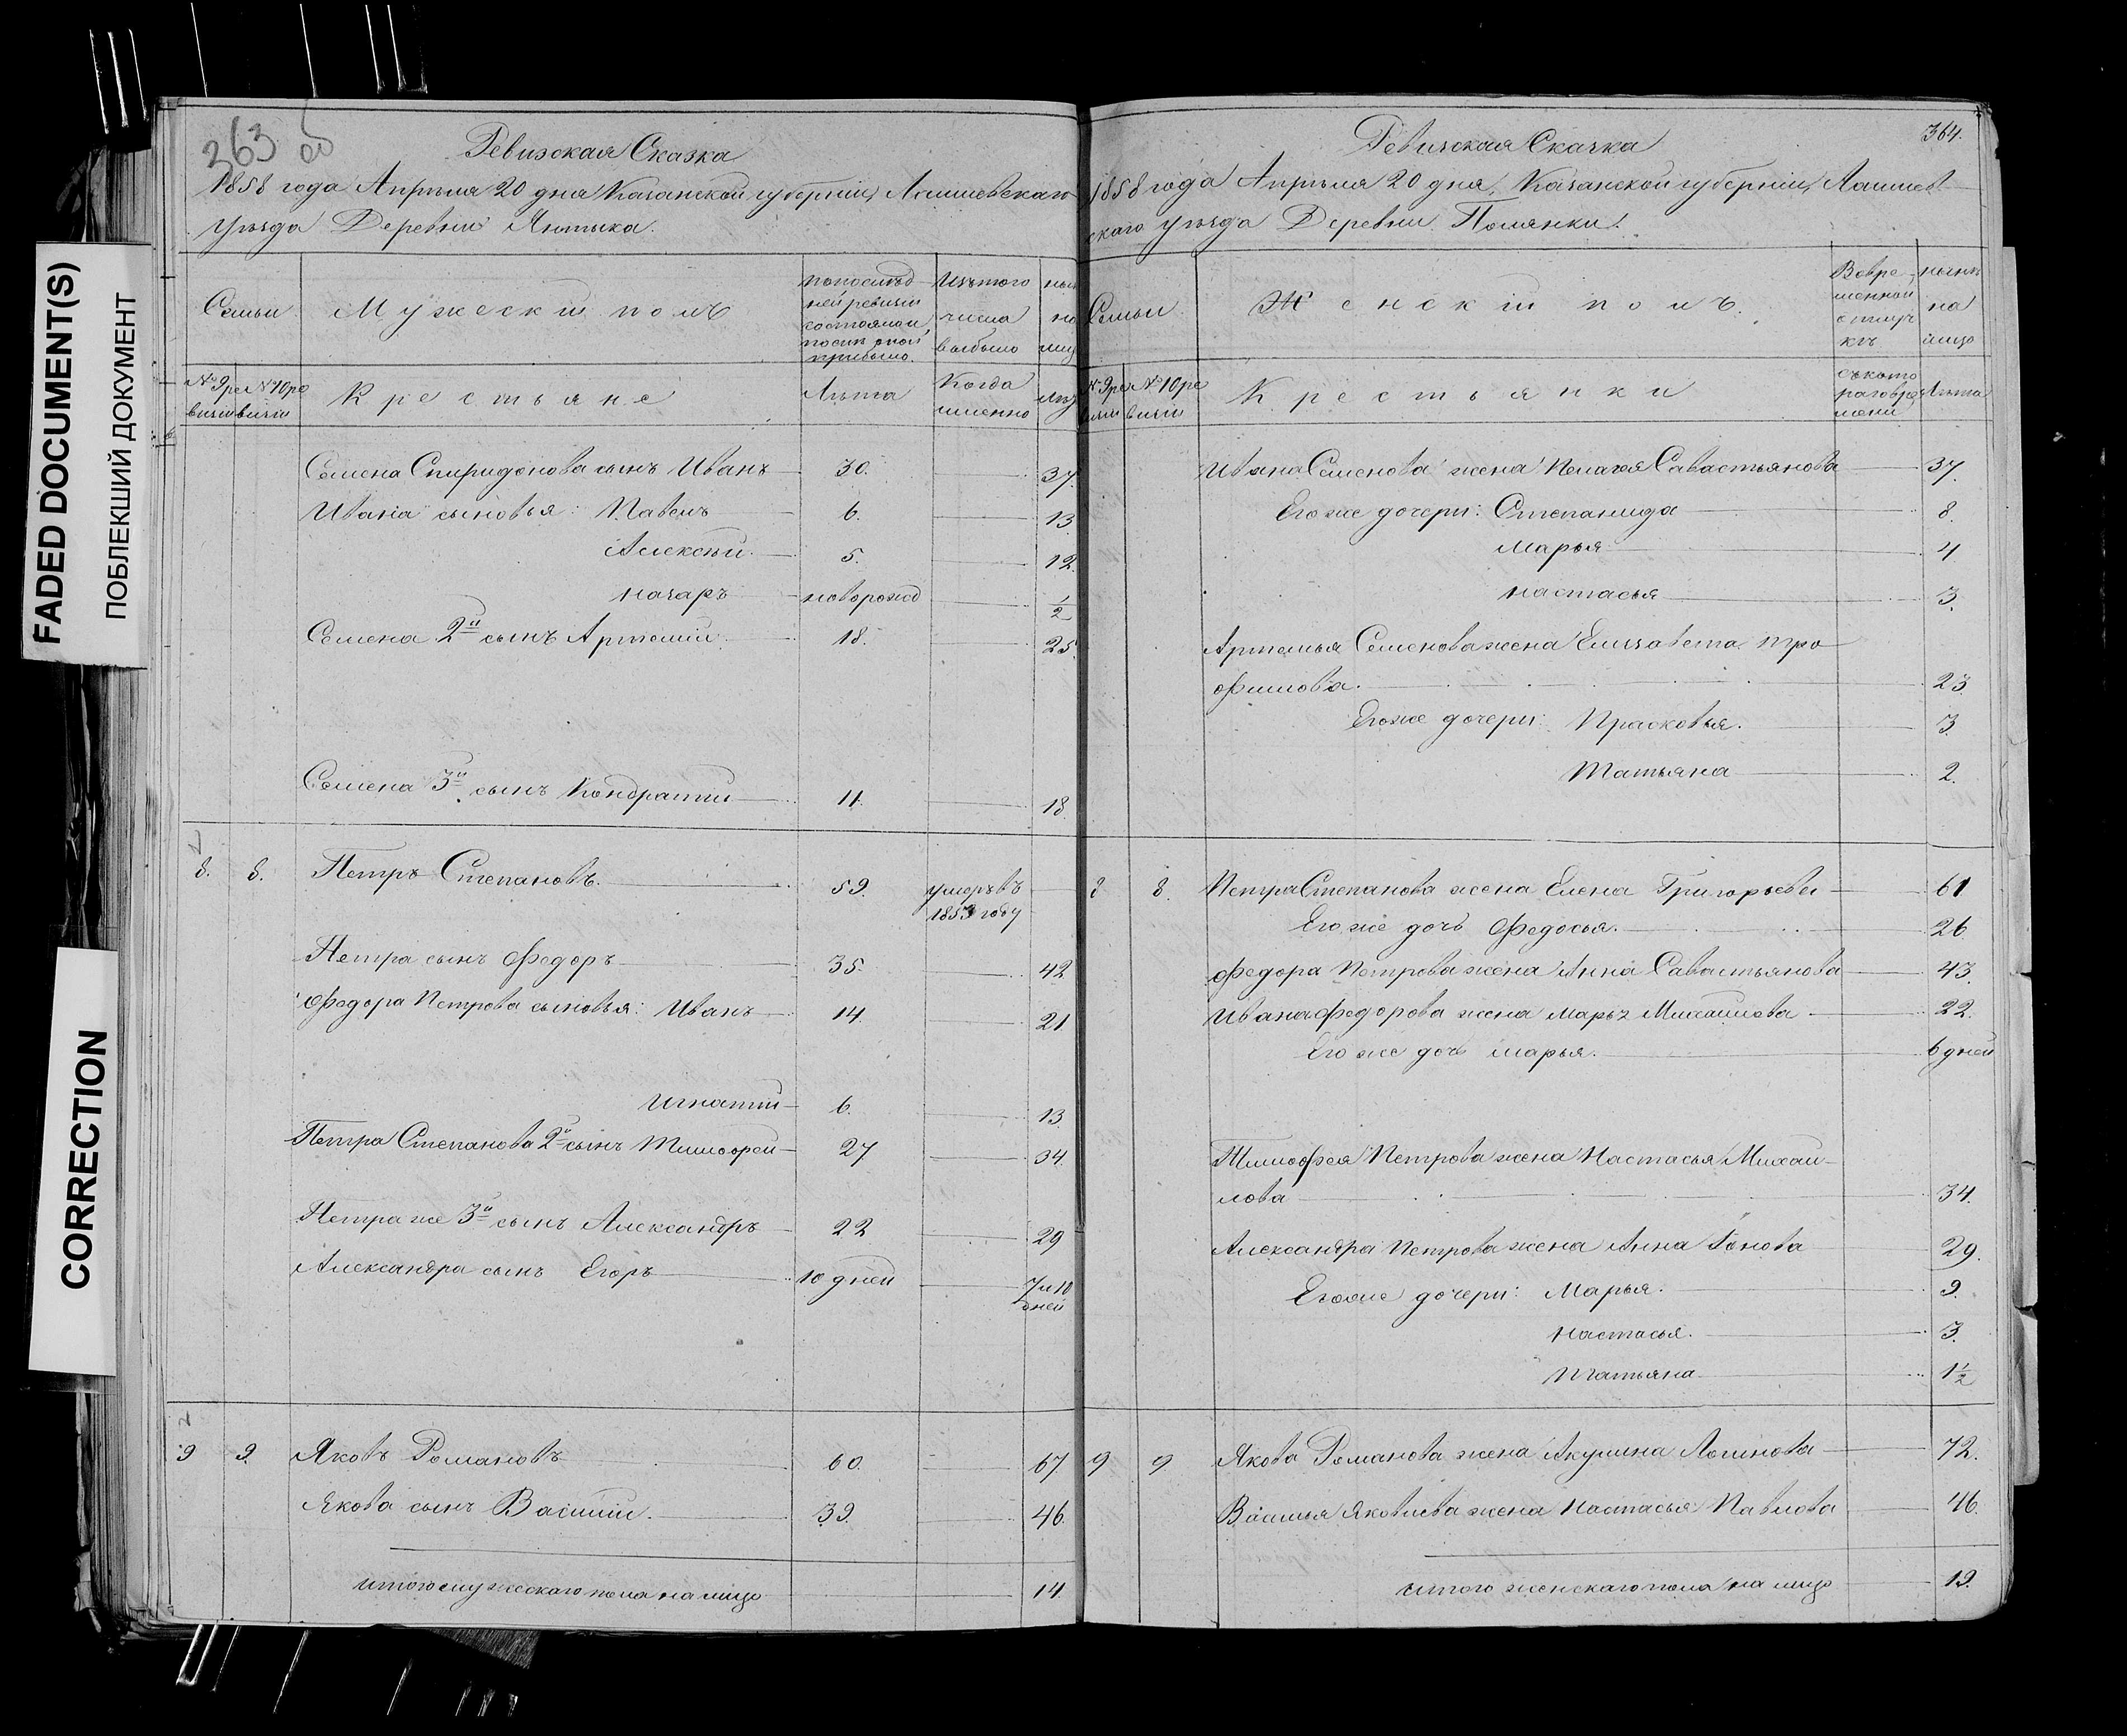 FADED DOCUMENT(S)
ПОБЛЕКШИЙ ДОКУМЕНТ
CORRECTION
263 об
Ревизская Сказка
1858 года Апрѣля 20 дня Казанской губерніи, Лаишевскаго
уѣзда Деревни Янтыка.
Семьи
Мужескій полъ
по послѣд-
ней ревизіи
состояло и
послѣ оной
прибыло.
Изъ того
числа
выбыло
№ 9 ре
визіи
№ 10 ре
визіи
Крестьяне
Лѣта
Когда
именно
Семена Спиридонова сынъ Иванъ 30. 37.
Ивана сыновья: Павелъ 6. 13
Алексѣй 5. 12.
Назаръ новорожд 1/2
Семена 2й сынъ Артемій. 18. 25.
Семена 3й сынъ Кондратій 11. 18.
8. 8. Петръ Степановъ. 59. умеръ въ
1853 году
Петра сынъ Федоръ 35. 42
Федора Петрова сыновья: Иванъ 14. 21
Игнатій 6. 13.
Петра Степанова 2й сынъ Тимофей 27 34.
Петра же 3й сынъ Александръ 22 29
Александра сынъ Егоръ 10 дней 7 и 10
дней
9 9. Яковъ Романовъ 60. 67
Якова сынъ Василій. 39. 46.
итого мужескаго пола на лицо 14
364.
Ревизская Сказка
1858 года Апрѣля 20 дня, Казанской губерніи, Лаишев-
скаго уѣзда Деревни Полянки.
Семьи
Женскій полъ.
Во вре-
менной
отлуч
кѣ
нынѣ
на
лицо
№ 9 ре
визіи
№ 10 ре
визіи
Крестьянки
съ кото
раго вре
мени
Лѣта
Ивана Семенова жена Пелагея Савастьянова 37.
Его же дочери: Степанида 8.
Марья 4
Настасья 3.
Артемья Семенова жена Елизавета Тро
фимова. 23
Его же дочери: Прасковья. 3.
Татьяна 2.
8 8. Петра Степанова жена Елена Григорьева 61
Его же дочь Федосья. 26
Федора Петрова жена Анна Савастьянова 43.
Ивана Федорова жена Марья Михайлова 22.
Его же дочь Марья. 6 дней
Тимофея Петрова жена Настасья Михай-
лова 34.
Александра Петрова жена Анна 29.
Его же дочери: Марья. 9.
Настасья. 3.
Татьяна 1 1/2
9 9 Якова Романова жена Акулина Логинова 72.
Василья Яковлева жена Настасья Павлова 46.
итого женскаго пола на лицо 19.